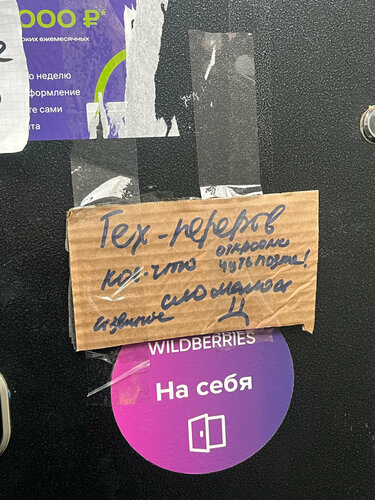 000 ₽*
оких ежемесячных
ю неделю
формление
те сами
та
Тех-перерыв
кое-что
чуть позже!
сломалось
извините
WILDBERRIES
На себя